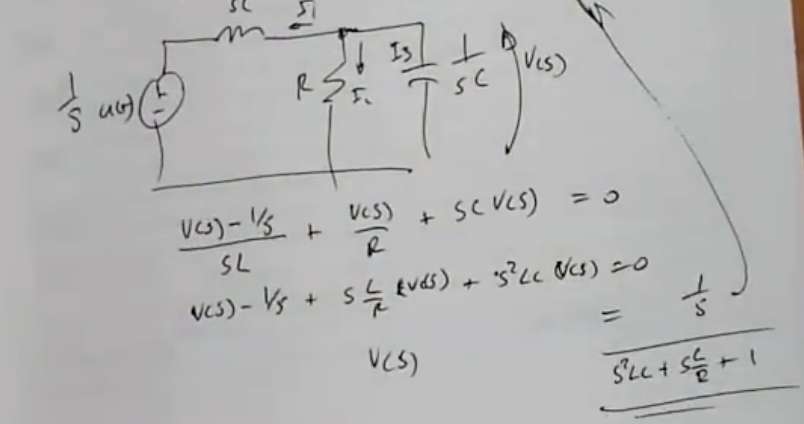 SL I1
1/S u(t) R I2 I3 1/SC V(S)
(V(S) - 1/S)/SL + V(S)/R + SC V(S) = 0
V(S) - 1/S + S L/R V(S) + S²LC V(S) = 0
V(S) = (1/S)/(S²LC + S L/R + 1)